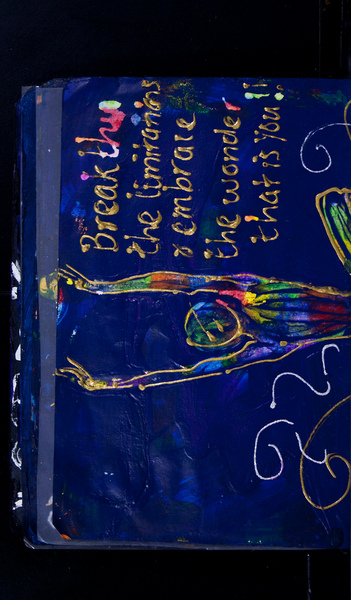 Break thru
the limitations
& embrace
the wonder
that is you!!